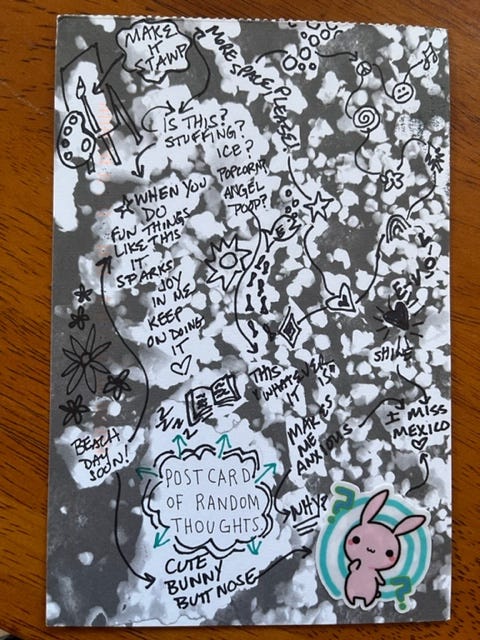 MAKE
IT
STAMP
MORE
SPACE PLEASE!
IS THIS?
STUFFING?
ICE?
POPCORN?
ANGEL
POOP?
WHEN YOU
DO
FUN THINGS
LIKE THIS
IT
SPARKS
JOY
IN ME
KEEP
ON DOING
IT
SHINE
THIS
WHATEVER
IT IS
MAKES
ME
ANXIOUS
WHY?
I MISS
MEXICO
BEACH
DAY
SOON!
POSTCARD
OF RANDOM
THOUGHTS
CUTE
BUNNY
BUTT NOSE
?
?